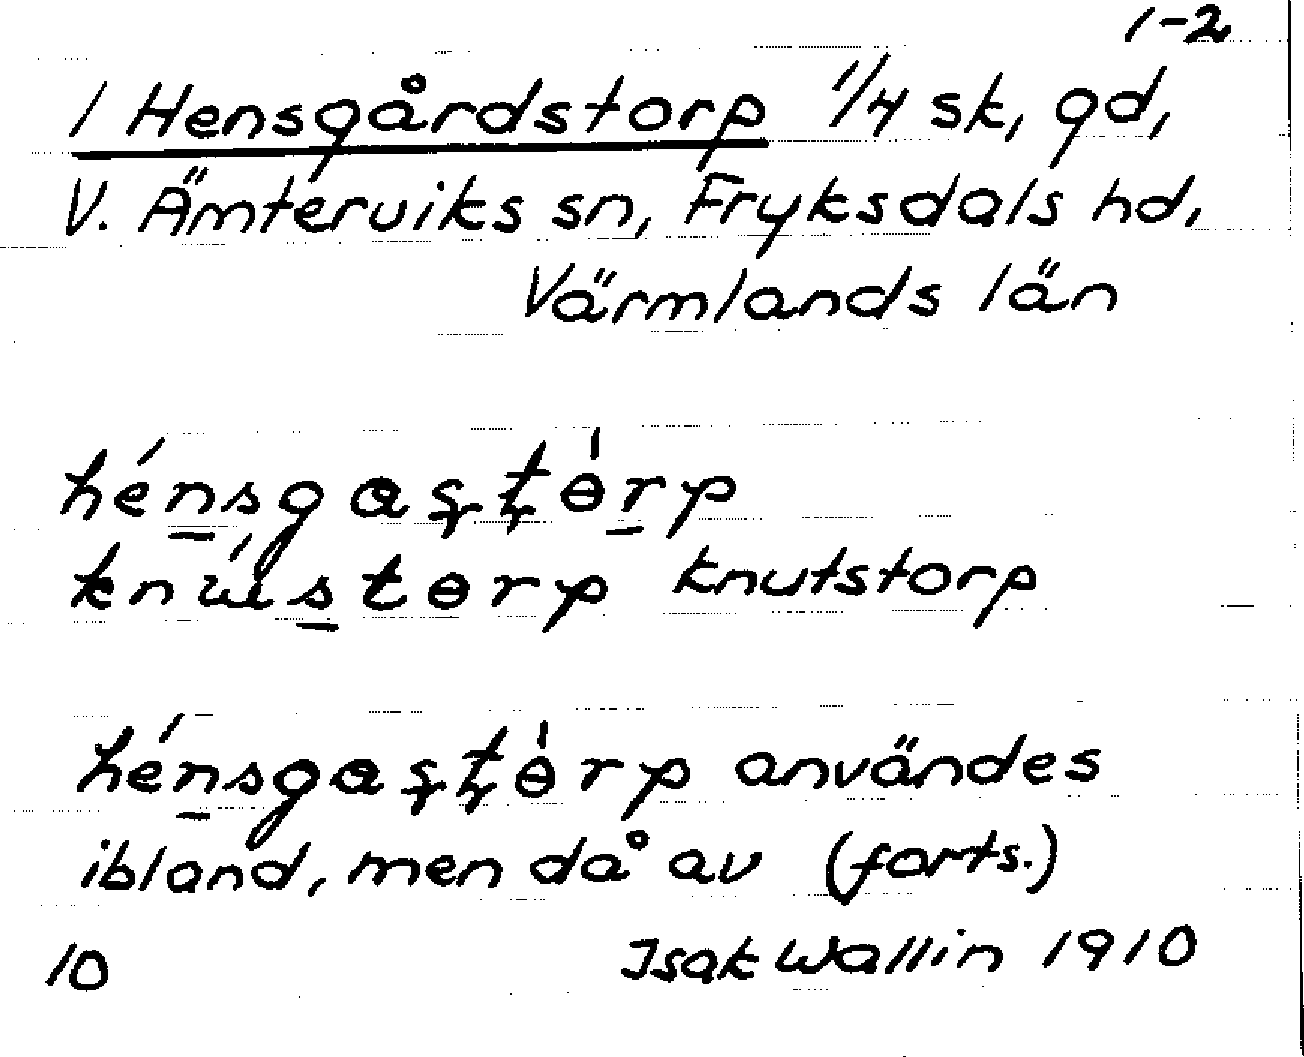 1-2
1 Hensgårdstorp 1/4 sk, gd,
V. Ämterviks sn, Fryksdals hd,
Värmlands län
hénsgaʂʈɵ́rp
knústɵrp knutstorp
hénsgaʂʈɵ́rp användes
ibland, men då av (forts.)
10 Isak Wallin 1910